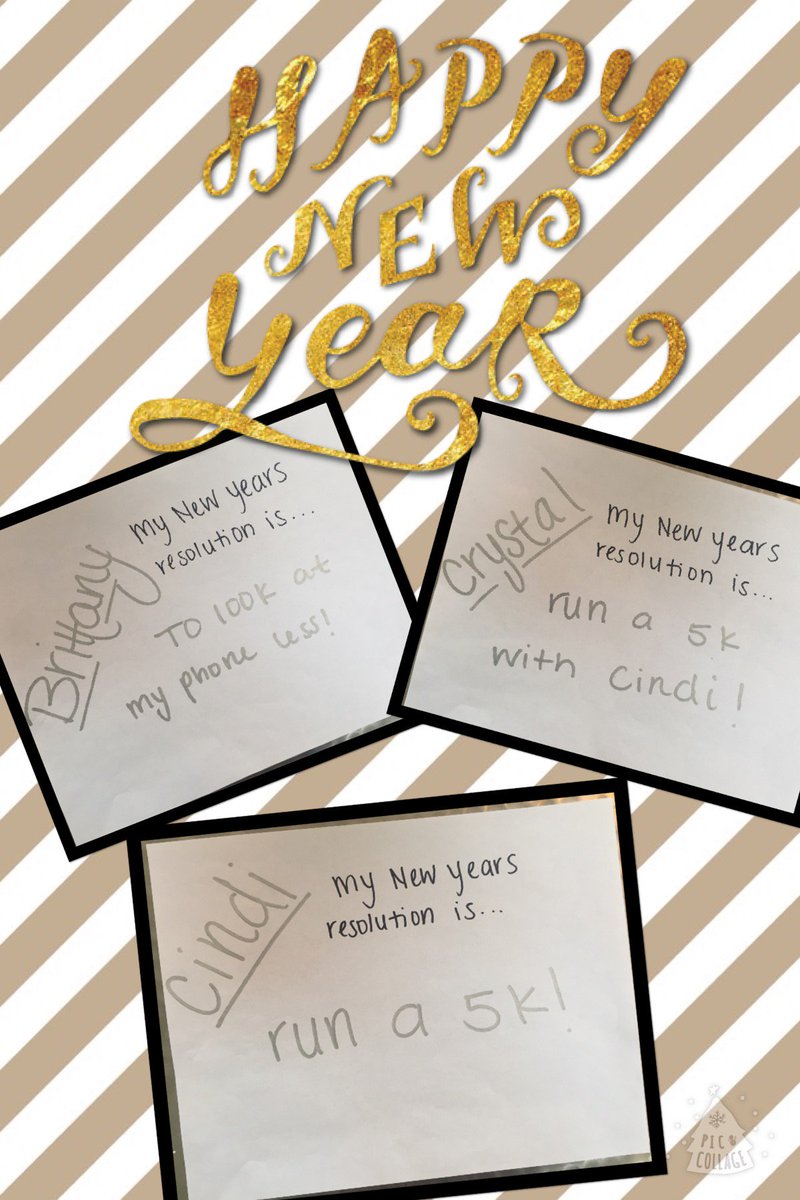 HAPPY
NEW
YeaR
Brittany
my New years
resolution is...
To look at
my phone less!
Crystal
my New years
resolution is...
run a 5k
with Cindi!
Cindi
my New years
resolution is...
run a 5k!
PIC
COLLAGE